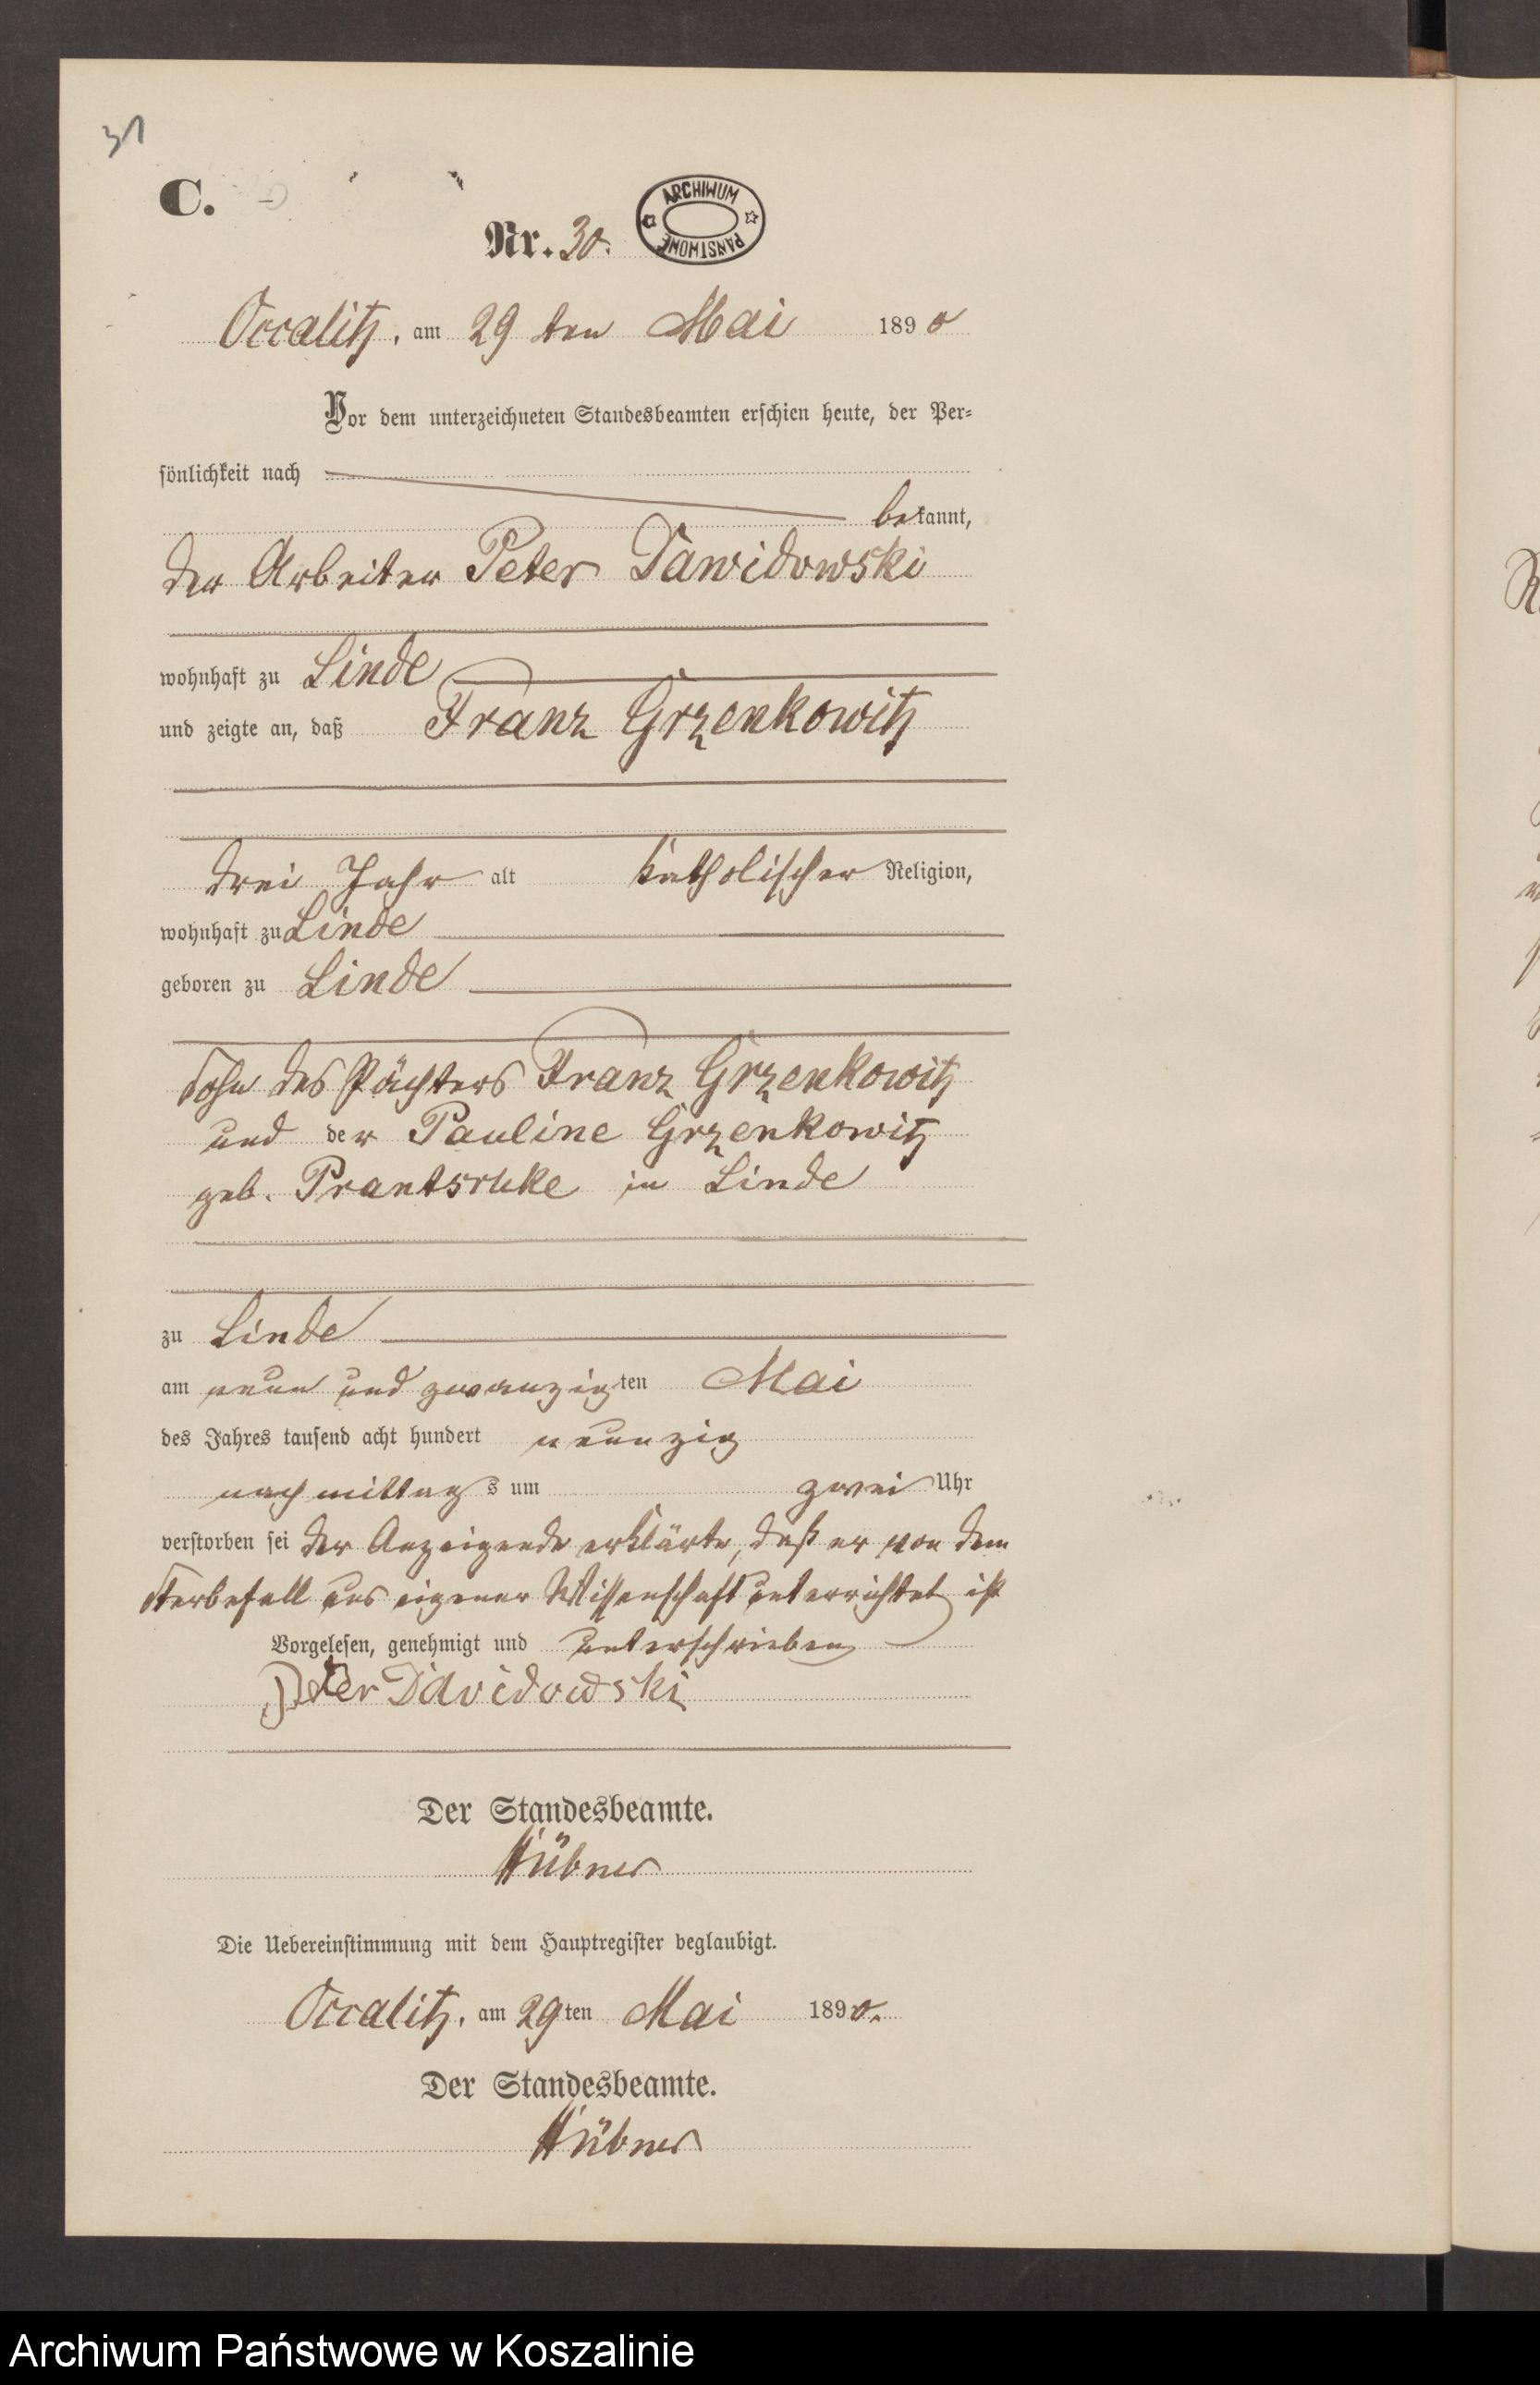 31
C.
Nr. 30.
ARCHIWUM PAŃSTWOWE
Occalitz, am 29 ten Mai 1890
Vor dem unterzeichneten Standesbeamten erschien heute, der Per-
sönlichkeit nach
bekannt,
der Arbeiter Peter Dawidowski
wohnhaft zu Linde
und zeigte an, daß Franz Grzenkowitz
drei Jahr alt katholischer Religion,
wohnhaft zu Linde
geboren zu Linde
Sohn des Pächters Franz Grzenkowitz
und der Pauline Grzenkowitz
geb. in Linde
zu Linde
am neun und zwanzigten Mai
des Jahres tausend acht hundert neunzig
nachmittags um zwei Uhr
verstorben sei der Anzeigende erklärte, daß er von dem
Sterbefall aus eigener Wissenschaft unterrichtet ist
Vorgelesen, genehmigt und unterschrieben
Peter Davidowski
Der Standesbeamte.
Hübner
Die Uebereinstimmung mit dem Hauptregister beglaubigt.
Occalitz, am 29ten Mai 1890.
Der Standesbeamte.
Hübner
Archiwum Państwowe w Koszalinie